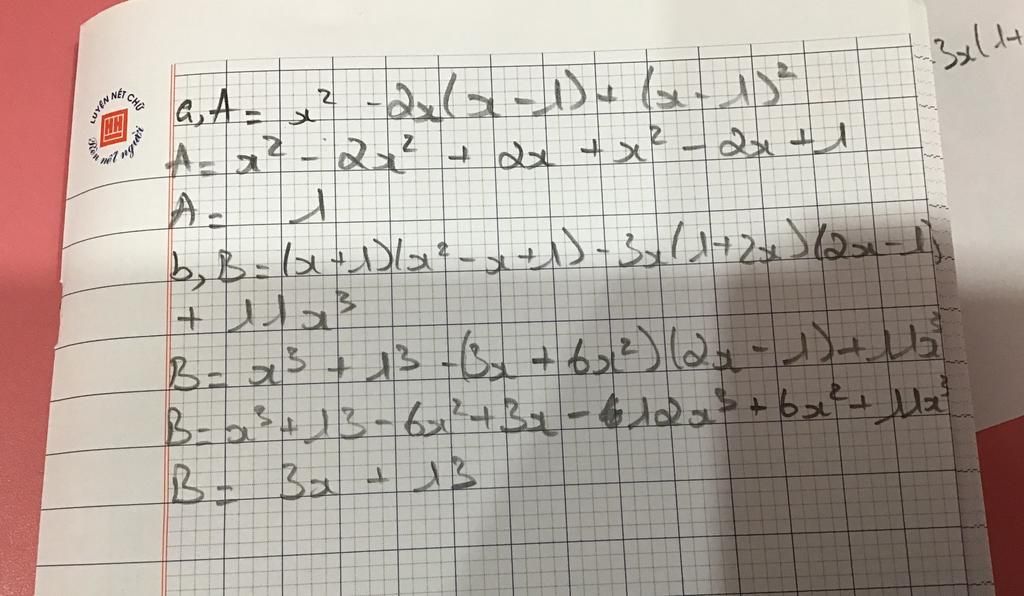 LUYỆN NÉT CHỮ
Rèn nết người
3x(1+
a, A = x² - 2x(x - 1) + (x - 1)²
A = x² - 2x² + 2x + x² - 2x + 1
A = 1
b, B = (x + 1)(x² - x + 1) - 3x(1 + 2x)(2x - 1)
+ 11x³
B = x³ + 1³ - (3x + 6x²)(2x - 1) + 11x³
B = x³ + 13 - 6x² + 3x - 12x³ + 6x² + 11x³
B = 3x + 13